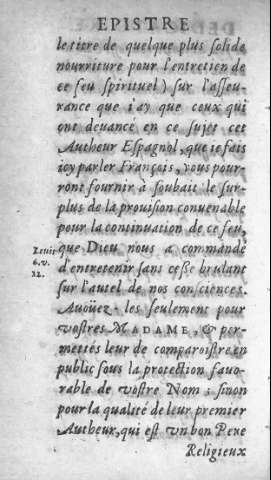 EPISTRE
le titre de quelque plus solide
nourriture pour l'entretien de
ce feu spirituel) sur l'asseu-
rance que i'ay que ceux qui
ont deuancé en ce sujet cet
Autheur Espagnol, que ie fais
icy parler François, vous pour-
ront fournir à souhait le sur-
plus de la prouision conuenable
pour la continuation de ce feu,
que Dieu nous a commandé
Leuit.
6. v.
12.
d'entretenir sans cesse brulant
sur l'autel de nos consciences.
Auoüez-les seulement pour
vostres MADAME, & per-
mettés leur de comparoistre en
public sous la protection fauo-
rable de vostre Nom; sinon
pour la qualité de leur premier
Autheur, qui est vn bon Pere
Religieux